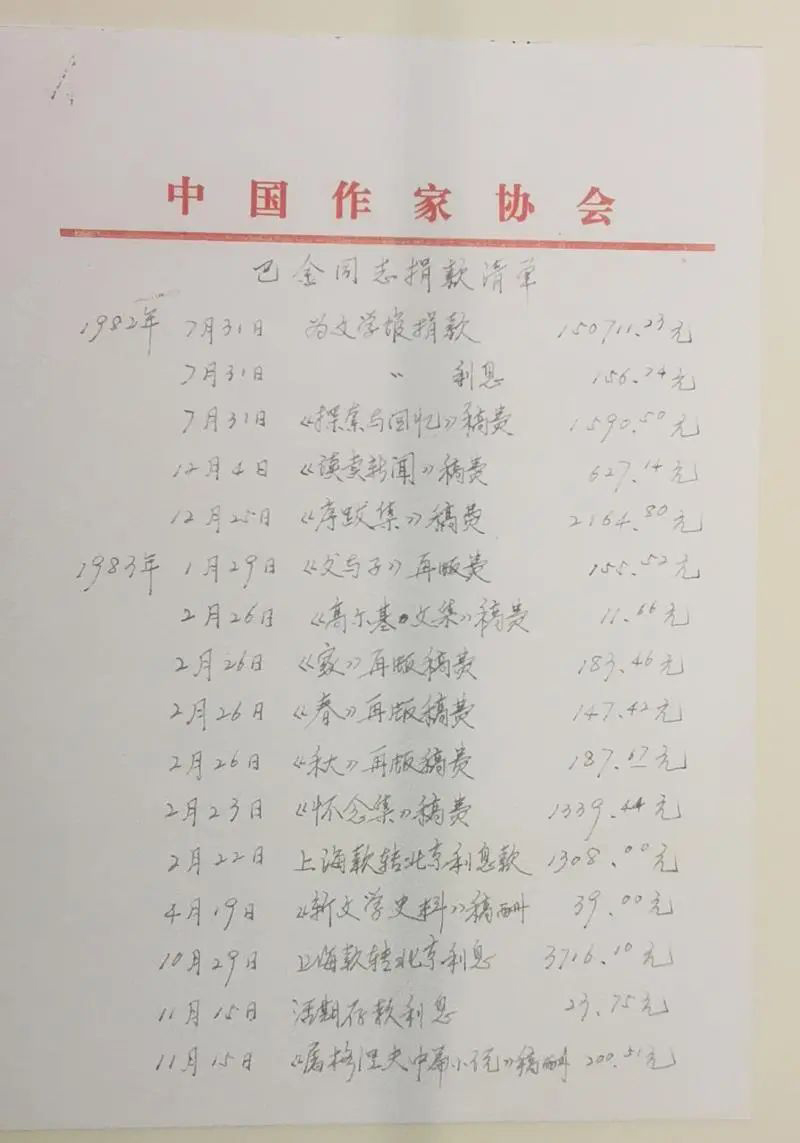 中国作家协会
巴金同志捐款清单
1982年 7月31日 为文学馆捐款 150711.23元
7月31日 〃 利息 156.24元
7月31日 《探索与回忆》稿费 1590.50元
12月4日 《读卖新闻》稿费 627.14元
12月25日 《序跋集》稿费 2164.80元
1983年 1月29日 《父与子》再版费 155.52元
2月26日 《高尔基文集》稿费 11.66元
2月26日 《家》再版稿费 183.46元
2月26日 《春》再版稿费 147.42元
2月26日 《秋》再版稿费 187.67元
2月23日 《怀念集》稿费 1339.44元
2月22日 上海款转北京利息款 1308.00元
4月19日 《新文学史料》稿酬 39.00元
10月29日 上海款转北京利息 3716.10元
11月15日 活期存款利息 23.75元
11月15日 《屠格涅夫中篇小说》稿酬 200.51元